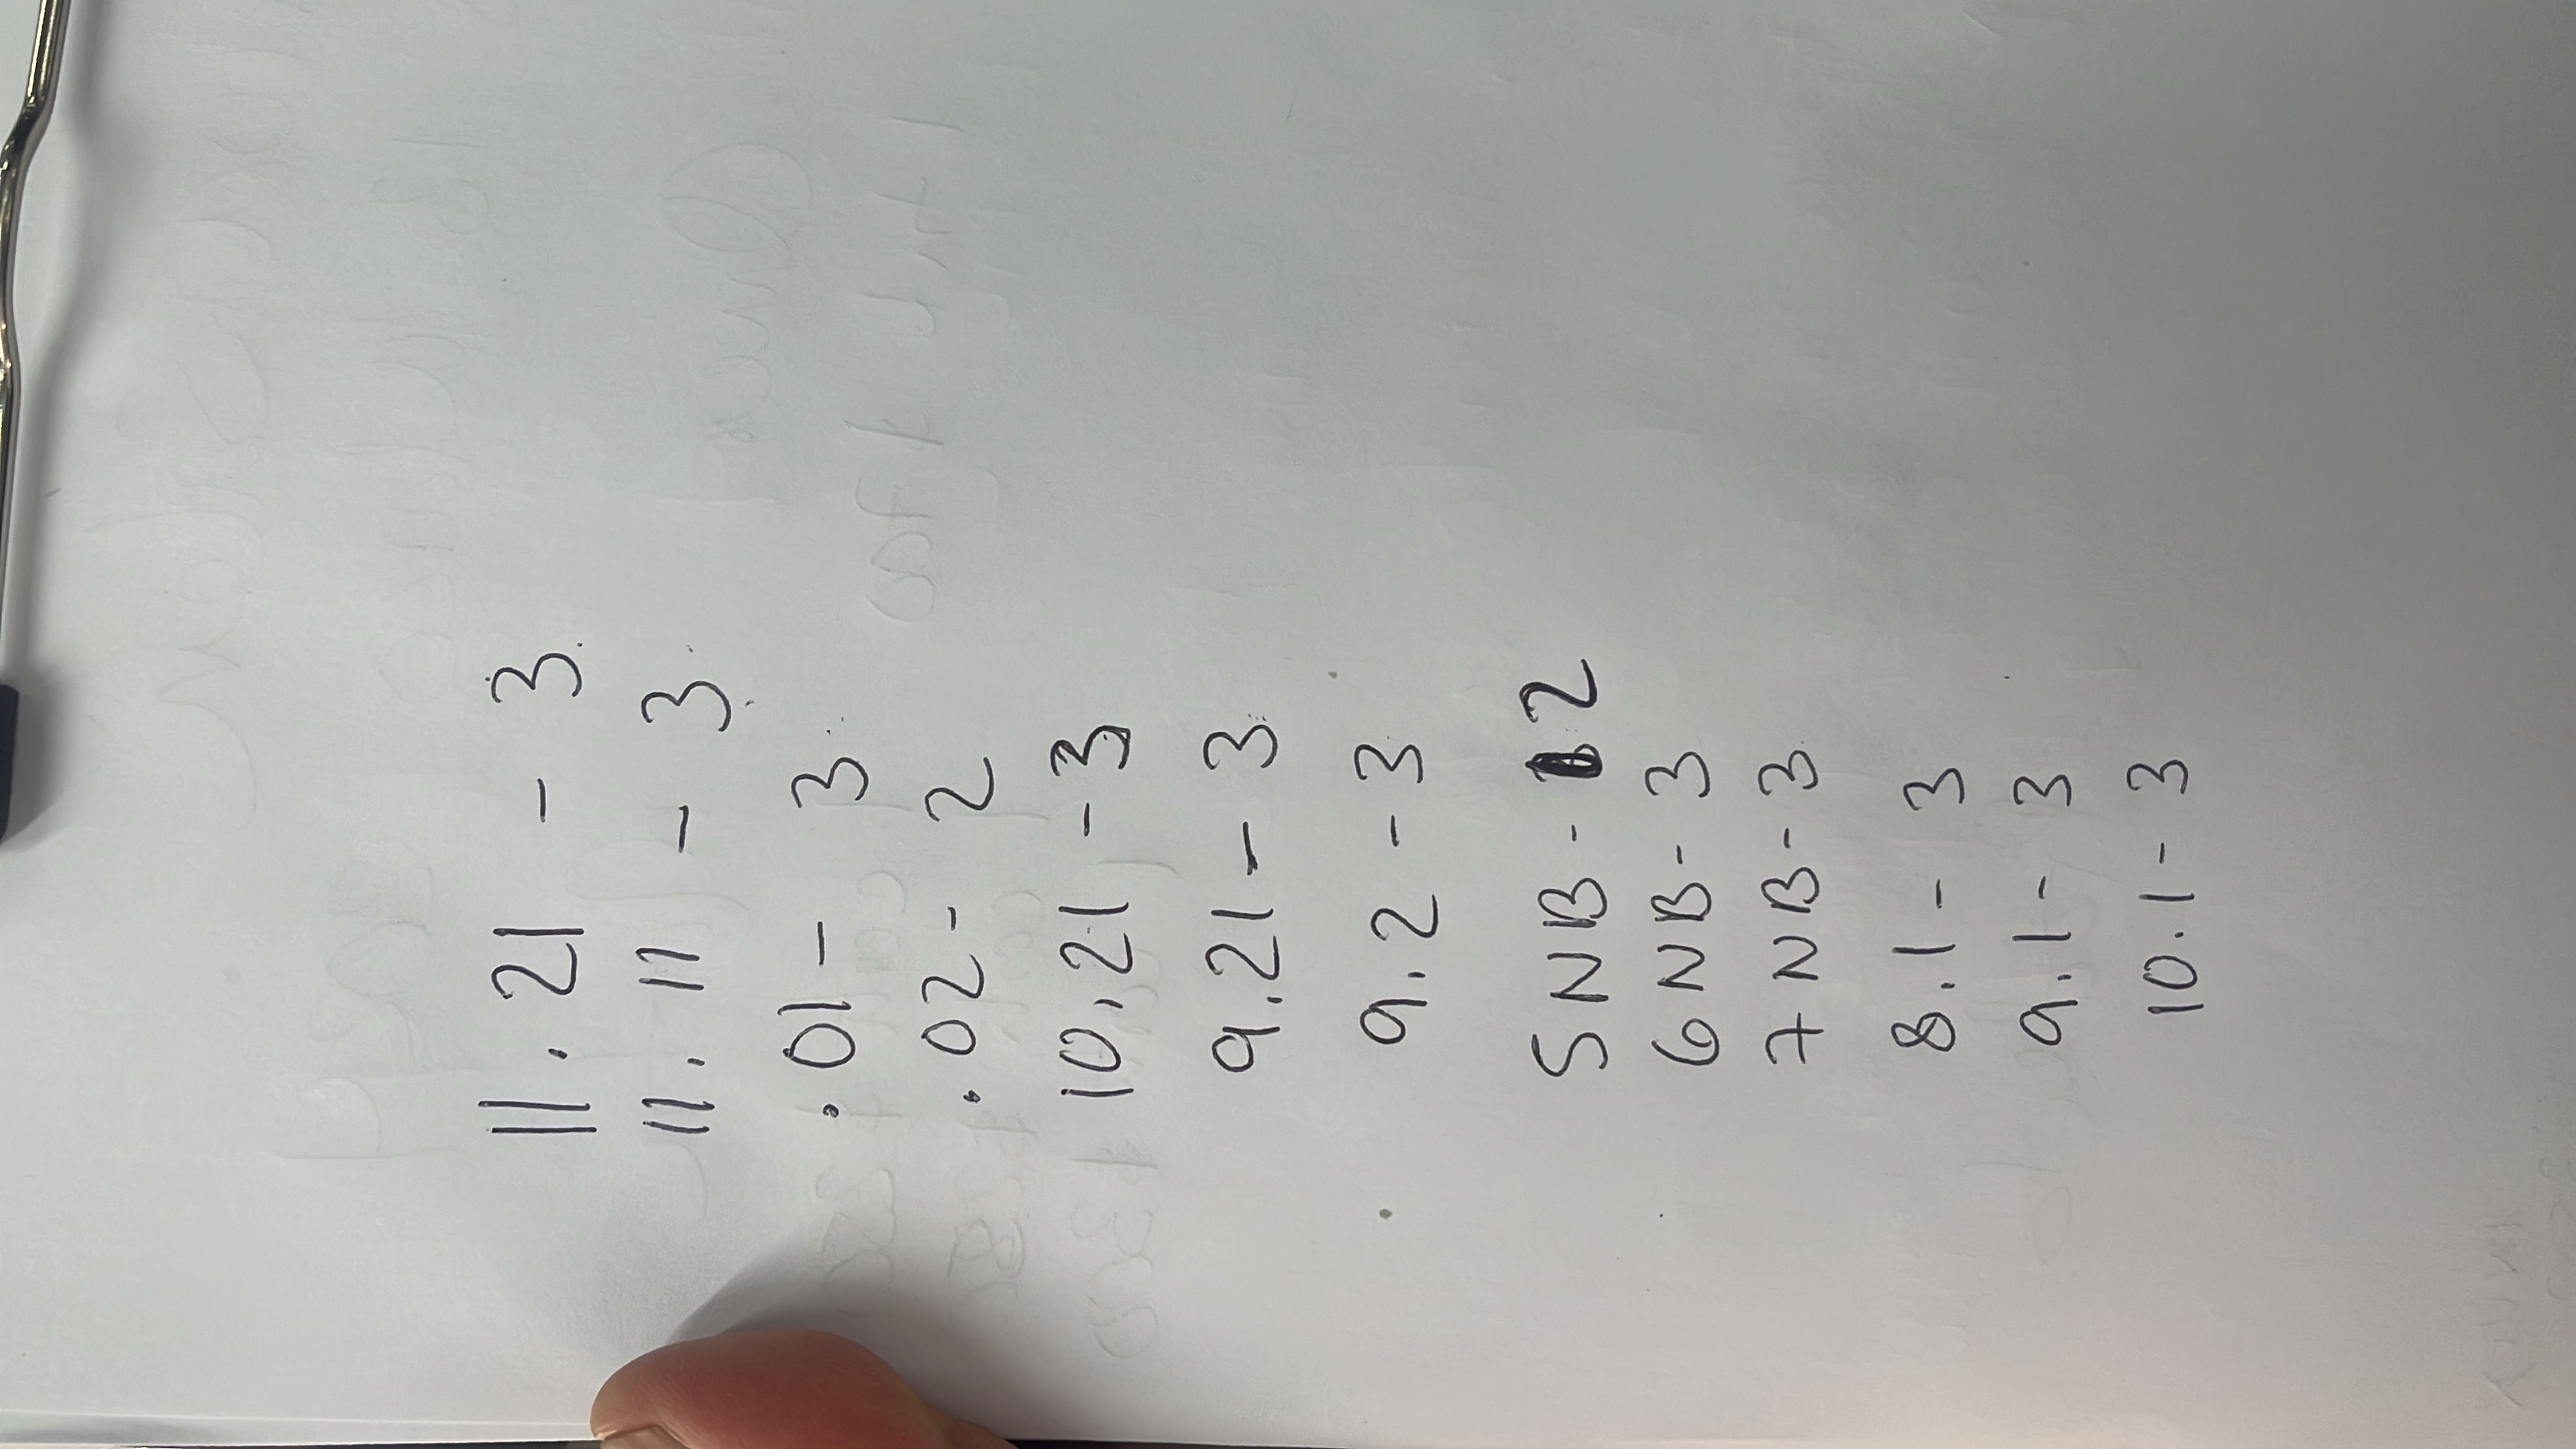 11.21 - 3
11.11 - 3
.01 - 3
.02 - 2
10.21 - 3
9.21 - 3
9.2 - 3
5NB - 2
6NB - 3
7NB - 3
8.1 - 3
9.1 - 3
10.1 - 3